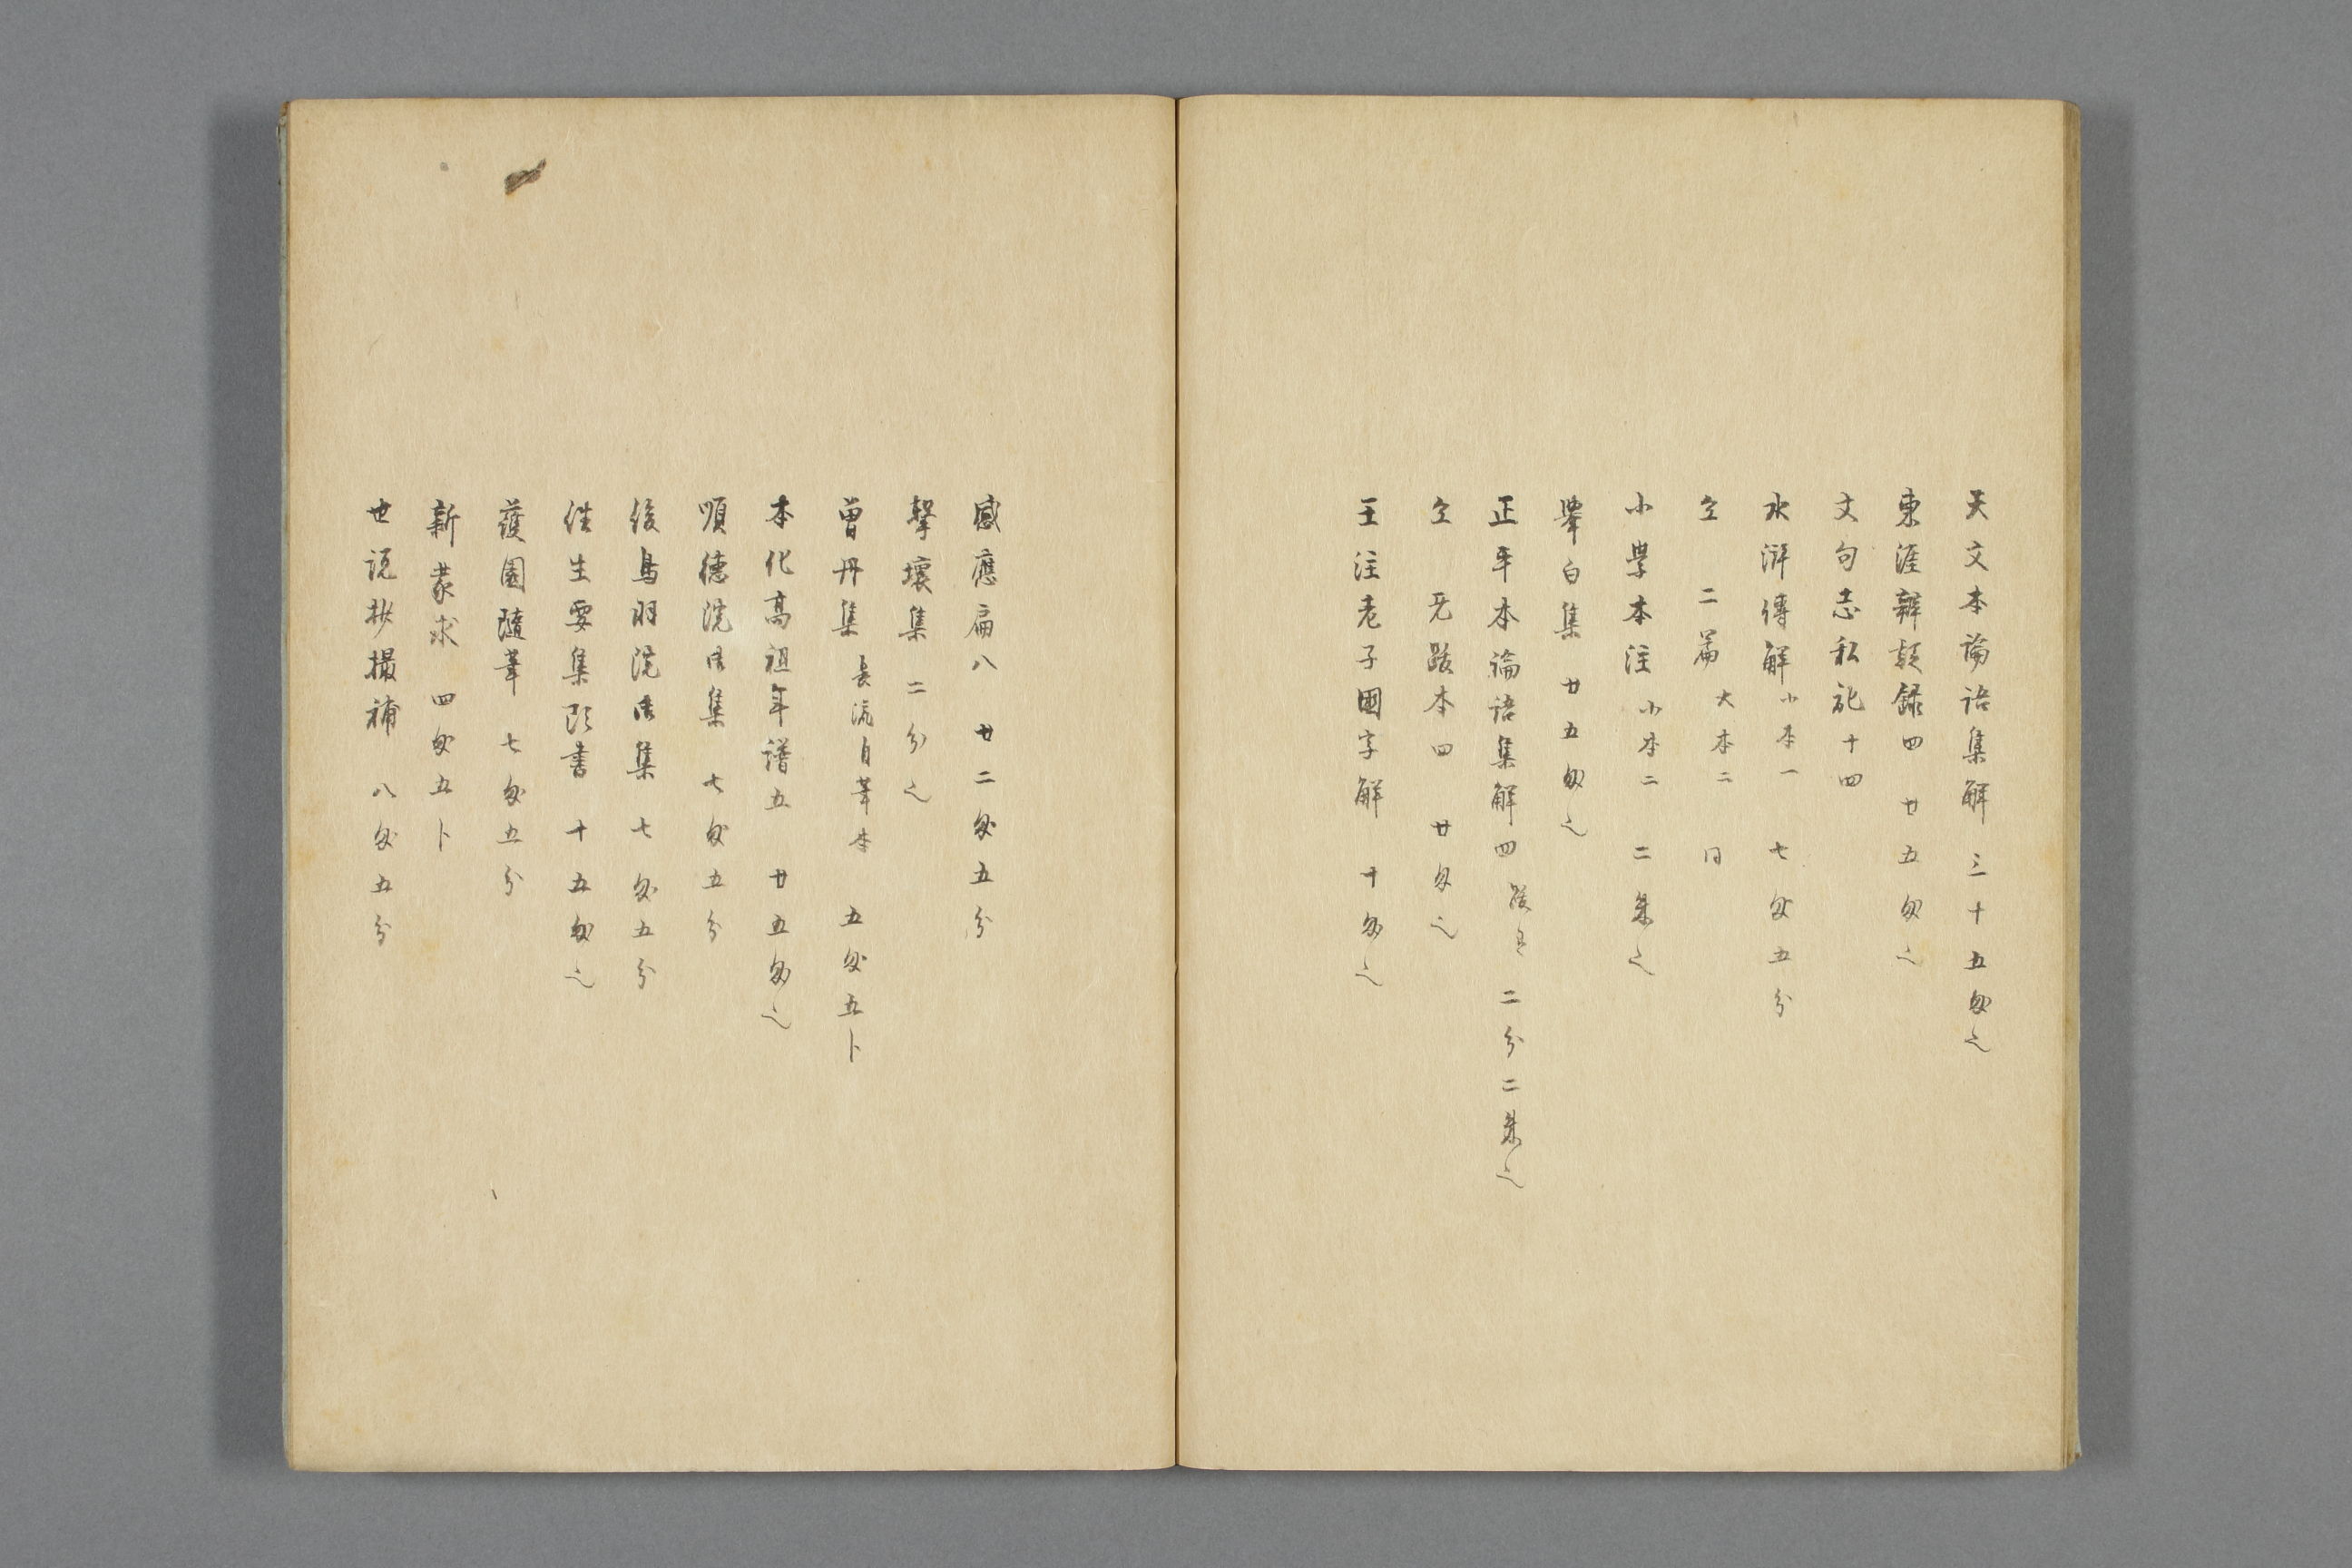 天文本論語集解 三十五匁之
東涯辨疑録四 廿五匁之
文句志私記十四
水滸傳解 小本一 七匁五分
仝 二篇 大本二 同
小學本注 小本二 二朱之
擧白集 廿五匁之
正平本論語集解四 跋 二分二朱之
仝 无跋本四 廿匁之
王注老子國字解 十匁之
感應扁八 廿二匁五分
擊壤集 二分之
曽丹集 長流自筆本 五匁五卜
本化高祖年譜五 廿五匁之
順德院御集 七匁五分
後鳥羽院御集 七匁五分
往生要集頭書 十五匁之
蘐園隨筆 七匁五分
新蒙求 四匁五卜
世説抄撮補 八匁五分